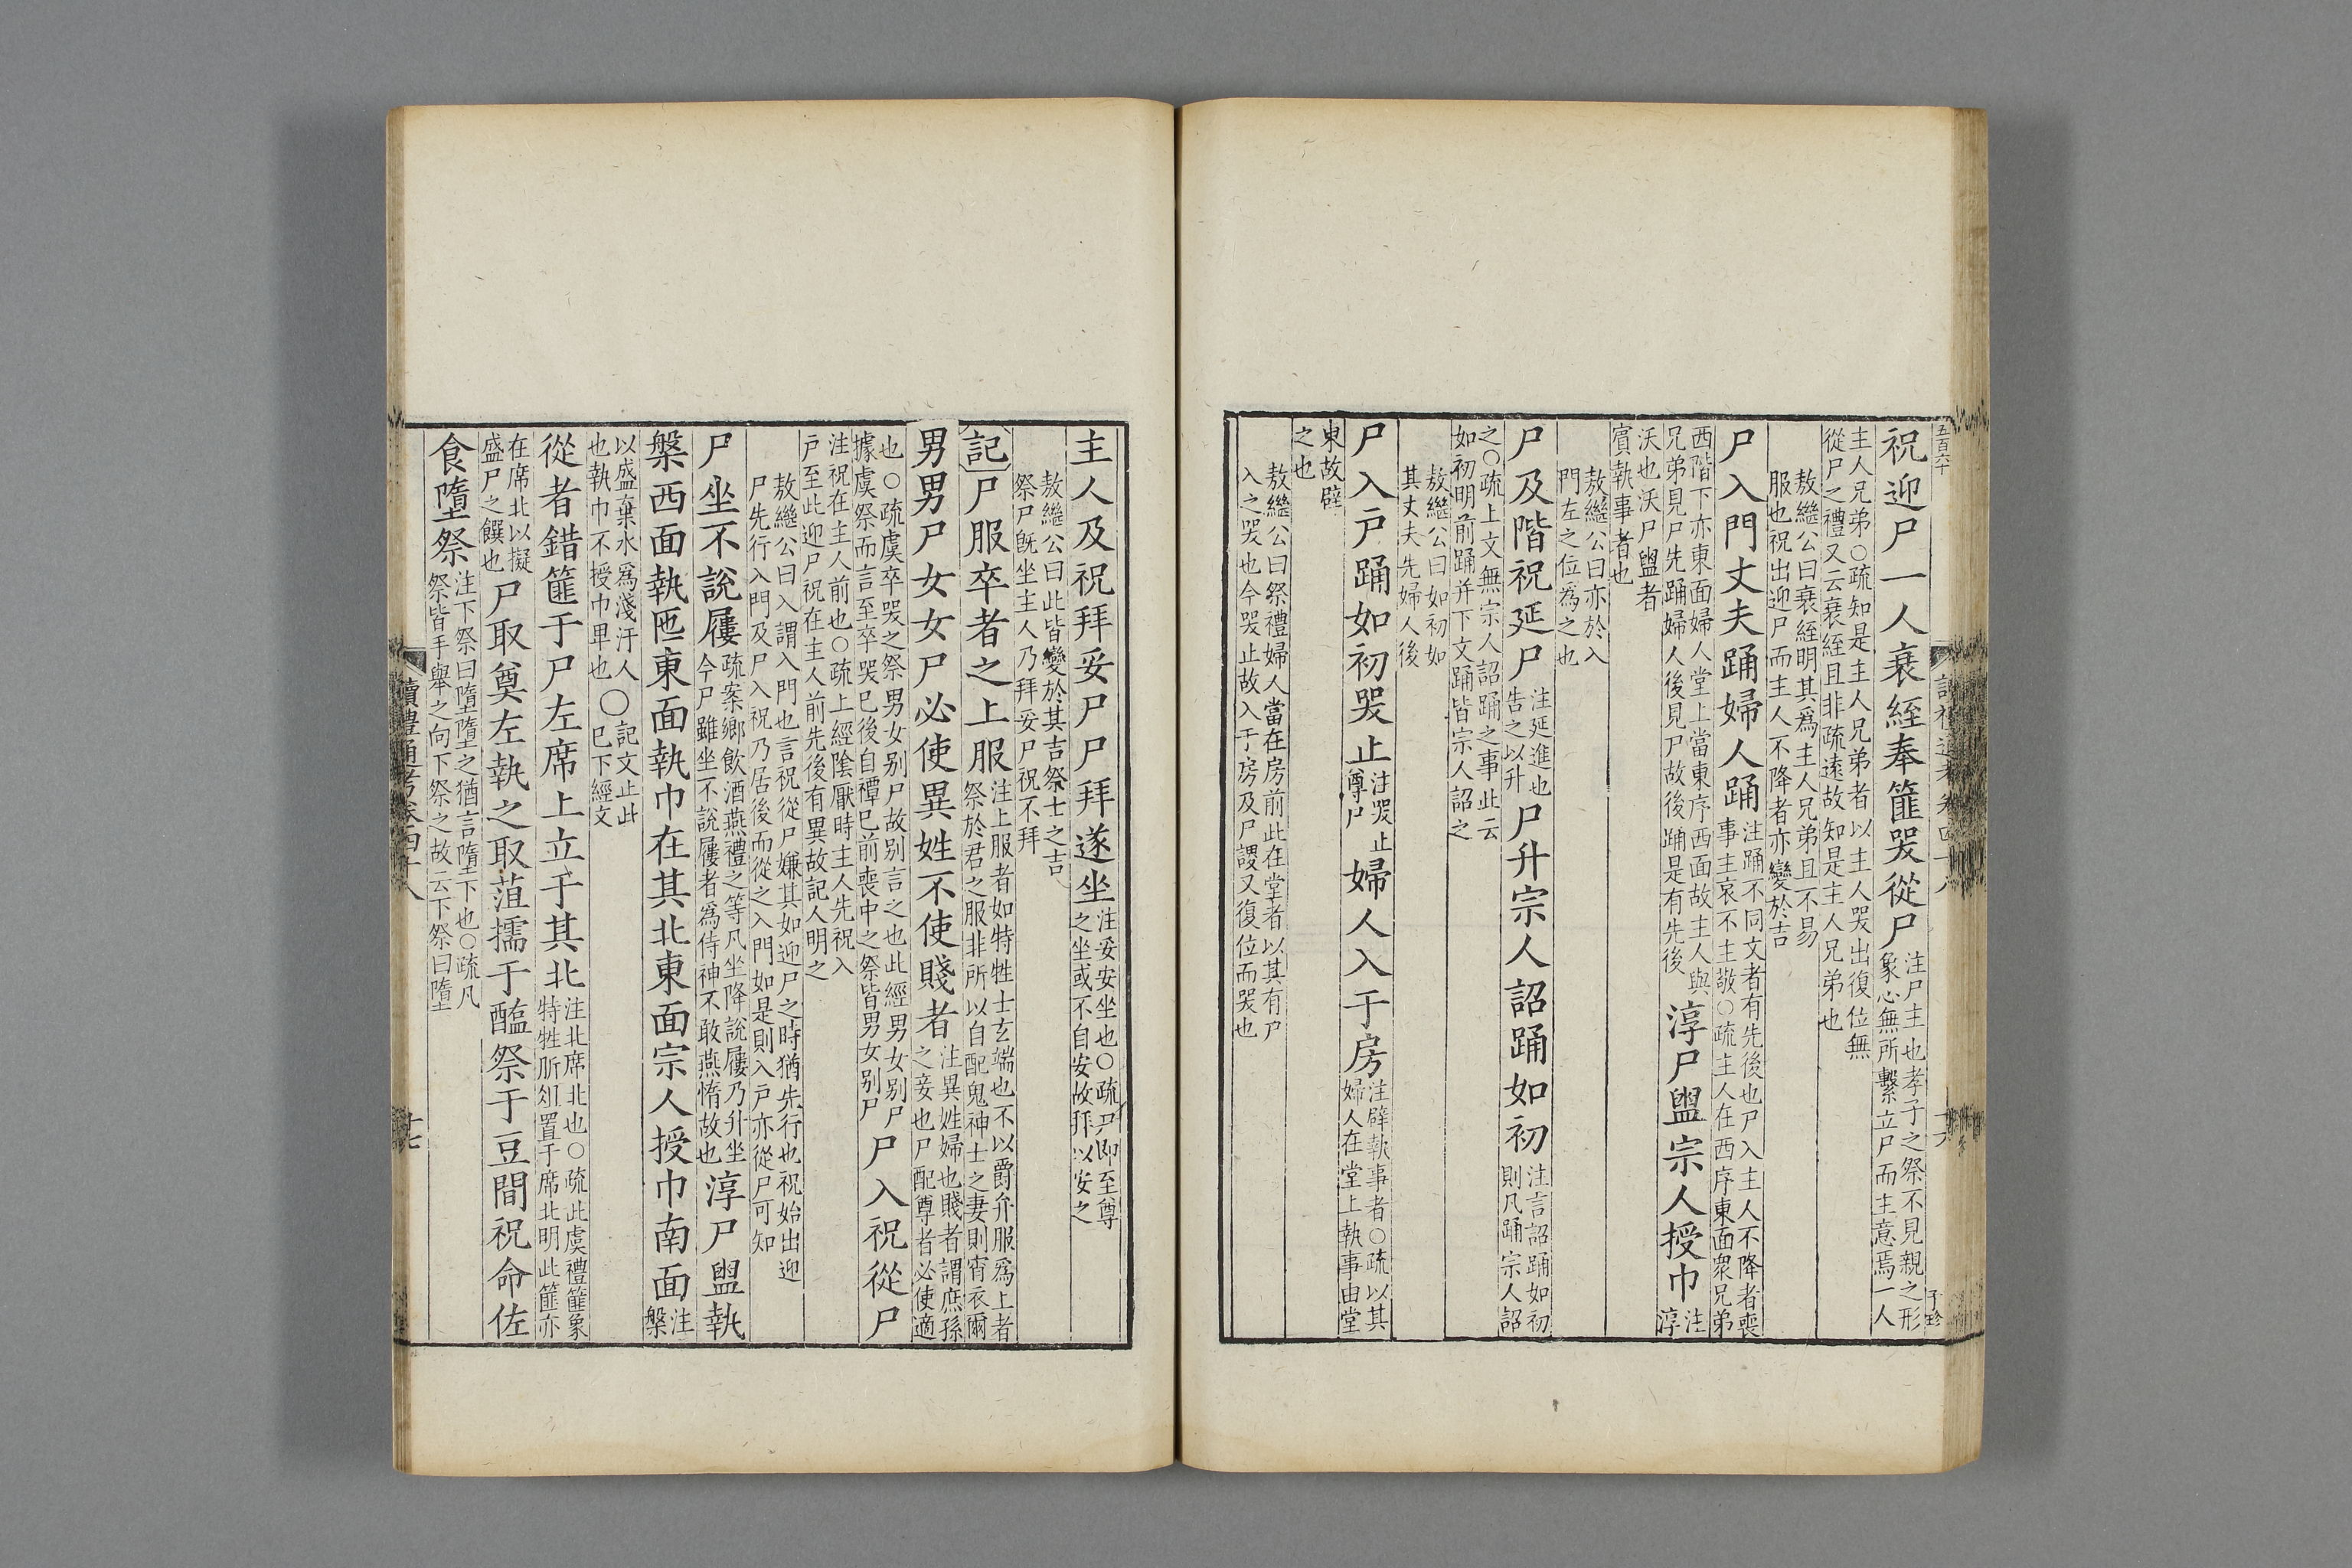 五百六十
讀禮通考卷四十八
十六
子珍
祝迎尸一人衰絰奉篚哭從尸注尸主也孝子之祭不見親之形象心無所繫立尸而主意焉一人
主人兄弟○疏知是主人兄弟者以主人哭出復位無從尸之禮又云衰絰且非疏遠故知是主人兄弟也
敖繼公曰衰絰明其爲主人兄弟且不易服也祝出迎尸而主人不降者亦變於吉
尸入門丈夫踊婦人踊注踊不同文者有先後也尸入主人不降者喪事主哀不主敬○疏主人在西序東面衆兄弟
西階下亦東面婦人堂上當東序西面故主人與兄弟見尸先踊婦人後見尸故後踊是有先後淳尸盥宗人授巾注淳
沃也沃尸盥者賓執事者也
敖繼公曰亦於入門左之位爲之也
尸及階祝延尸注延進也告之以升尸升宗人詔踊如初注言詔踊如初則凡踊宗人詔
之○疏上文無宗人詔踊之事此云如初明前踊并下文踊皆宗人詔之
敖繼公曰如初如其丈夫先婦人後
尸入戸踊如初哭止注哭止尊尸婦人入于房注辟執事者○疏以其婦人在堂上執事由堂
東故辟之也
敖繼公曰祭禮婦人當在房前此在堂者以其有尸入之哭也今哭止故入于房及尸謖又復位而哭也
主人及祝拜妥尸尸拜遂坐注妥安坐也○疏尸卽至尊之坐或不自安故拜以安之
敖繼公曰此皆變於其吉祭士之吉祭尸旣坐主人乃拜妥尸祝不拜
記尸服卒者之上服注上服者如特牲士玄端也不以爵弁服爲上者祭於君之服非所以自配鬼神士之妻則宵衣爾
男男尸女女尸必使異姓不使賤者注異姓婦也賤者謂庶孫之妾也尸配尊者必使適
也○疏虞卒哭之祭男女别尸故别言之也此經男女别尸據虞祭而言至卒哭已後自禫已前喪中之祭皆男女别尸尸入祝從尸
注祝在主人前也○疏上經陰厭時主人先祝入戸至此迎尸祝在主人前先後有異故記人明之
敖繼公曰入謂入門也言祝從尸嫌其如迎尸之時猶先行也祝始出迎尸先行入門及尸入祝乃居後而從之入門如是則入戸亦從尸可知
尸坐不說屨疏案鄉飮酒燕禮之等凡坐降說屨乃升坐今尸雖坐不說屨者爲侍神不敢燕惰故也淳尸盥執
槃西面執匜東面執巾在其北東面宗人授巾南面注槃
以盛棄水爲淺汙人也執巾不授巾卑也○記文止此已下經文
從者錯篚于尸左席上立于其北注北席北也○疏此虞禮篚象特牲肵俎置于席北明此篚亦
在席北以擬盛尸之饌也尸取奠左執之取菹擩于醢祭于豆間祝命佐
食墮祭注下祭曰墮墮之猶言墮下也○疏凡祭皆手舉之向下祭之故云下祭曰墮
讀禮通考卷四十八
十七